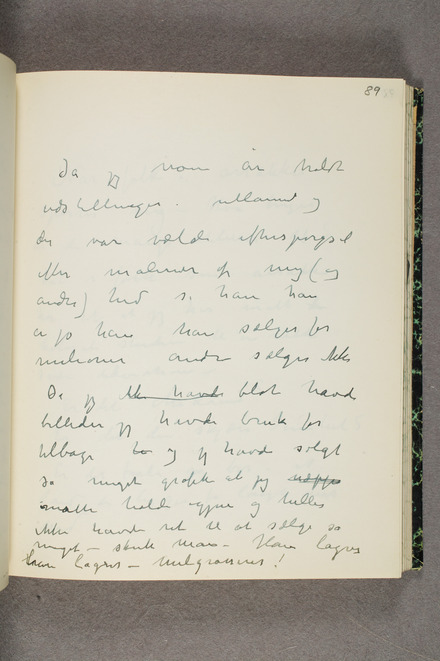 89
Da jeg noen år holdt
udstillinger i utlannd og
der var veldi efterspørgsel
efter malerier af mig (og
andre) hvad si han han
er jo han han sælges for
millioner andre sælges ikke
Da jeg ikke havde blot havde
billeder jeg havde bruk for
tilbage to og jeg havde solgt
sa meget grafik at jeg
matte holde igjen og heller
ikke havde ret til at sælge sa
meget – skrek man – Han lagrer
han lagrer – milgrosserer!